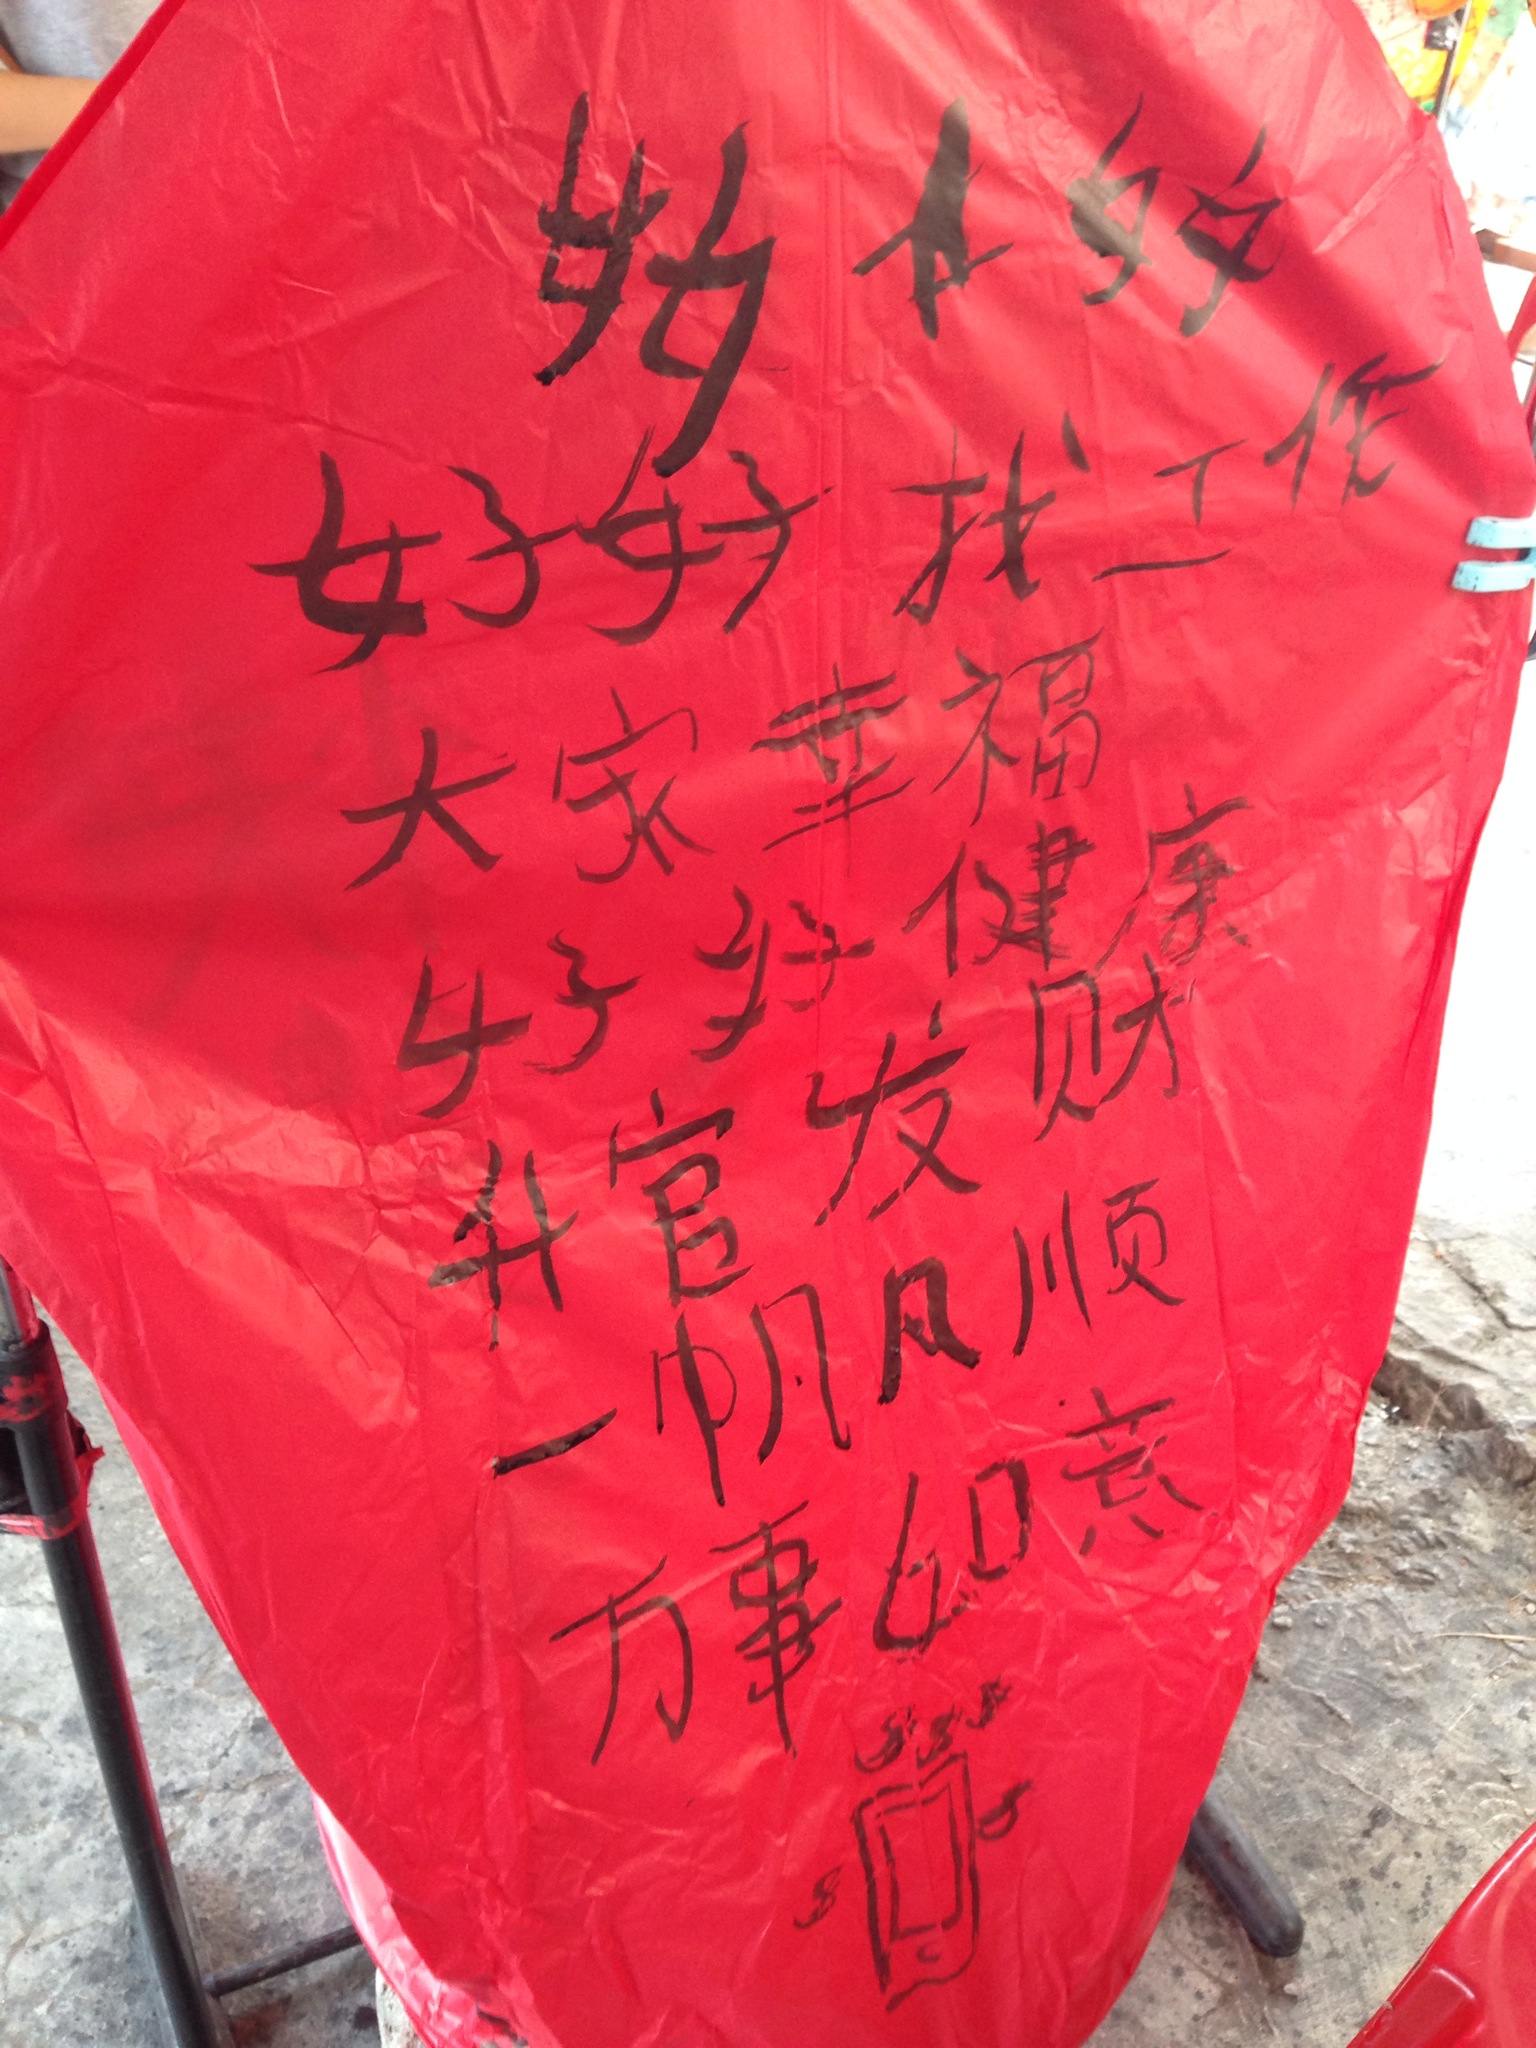 好好找工作
大家幸福
好好健康
升官发财
一帆风顺
万事如意